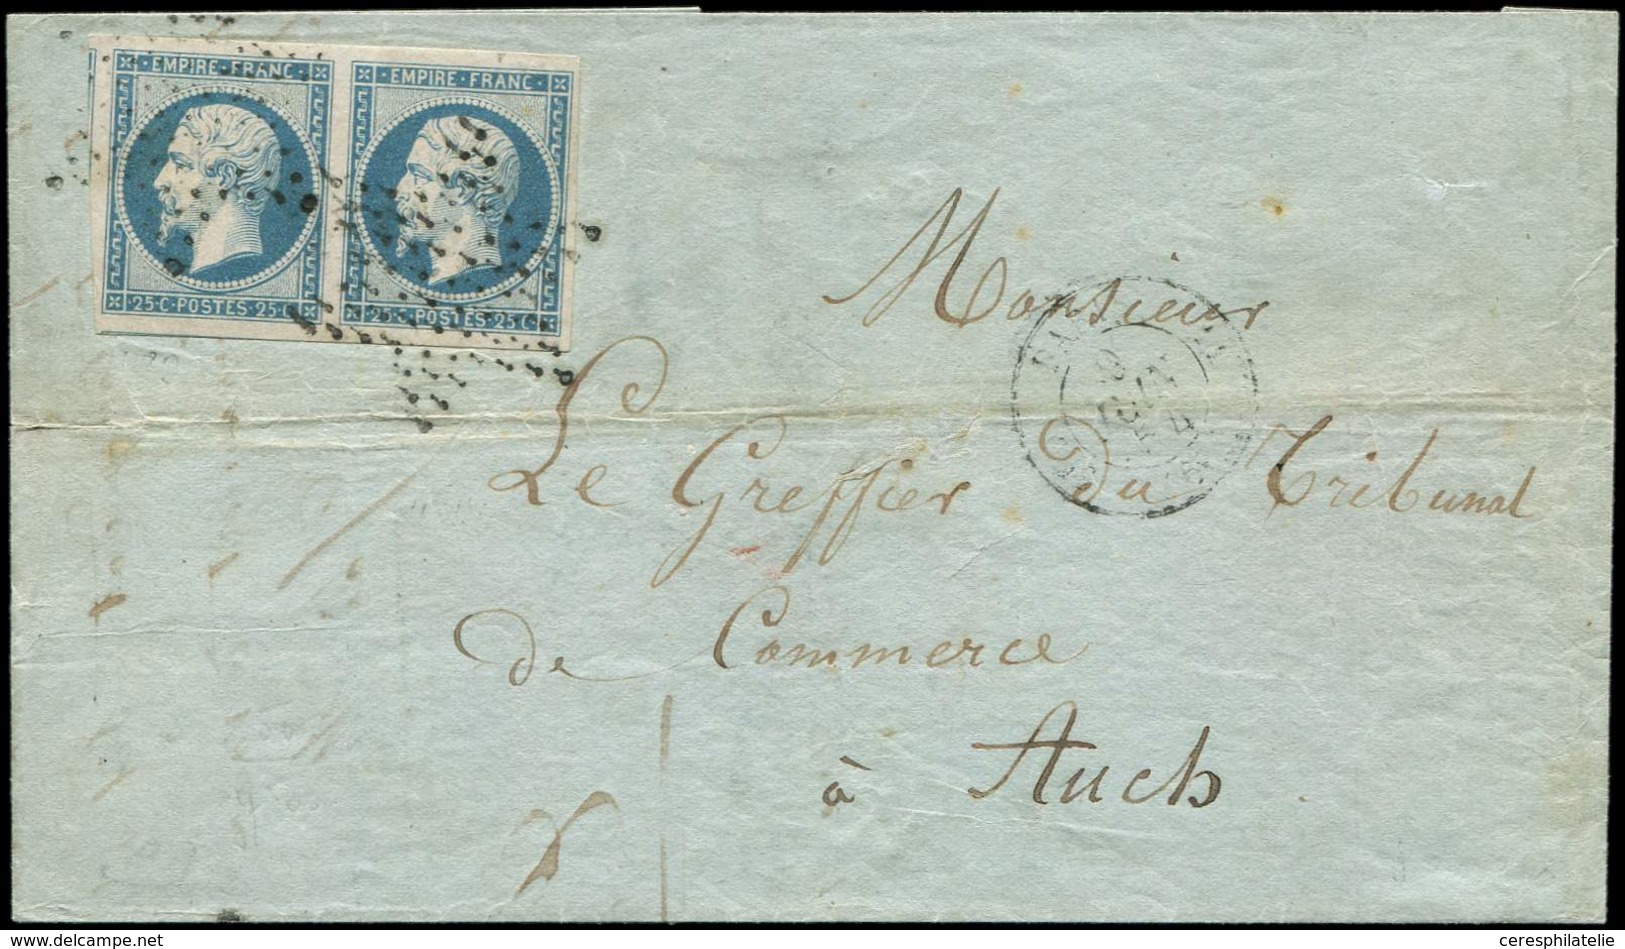 · EMPIRE · FRANC · · EMPIRE · FRANC ·
· 25 · C · POSTES · 25 · · 25 · C · POSTES · 25 C ·
Monsieur
Le Greffier du Tribunal
de Commerce
à Auch
delcampe.net
ceresphilatelie